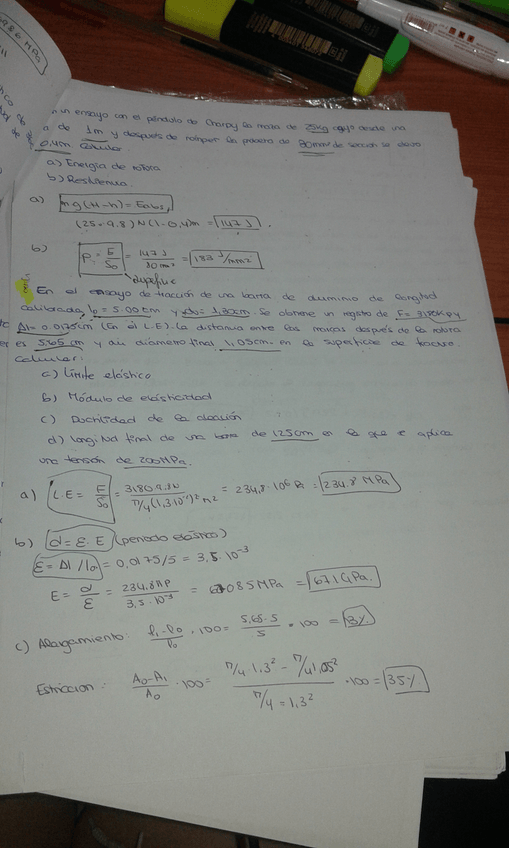 986 MPa
un ensayo con el péndulo de Charpy la maza de 25kg cayó desde una
a de 1m y después de romper la probeta de 80mm² de sección se elevó
0,4m Calcular:
a) Energía de rotura
b) Resiliencia.
a) mg(H-h) = Eabs,
(25·9.8)N(1-0,4)m = 147J.
b) ρ = E/S₀ = 147J/80m² = 1'83 J/mm²
superficie
En el ensayo de tracción de una barra de aluminio de longitud
calibrada, l₀ = 5.00cm y d₀ = 1,30cm. Se obtiene un registro de F = 3180Kp y
Δl = 0.0175cm (En el L.E). La distancia entre las marcas después de la rotura
es 5.65 cm y su diámetro final 1,05cm en la superficie de fractura.
Calcular:
a) Límite elástico
b) Módulo de elasticidad
c) Ductilidad de la aleación
d) longitud final de una barra de 125cm en la que se aplica
una tensión de 200MPa.
a) L.E = F/S₀ = 3180·9.8N / π/4(1,3·10⁻²)² m² = 234,8·10⁶ Pa = 234.8 MPa
b) σ = ε·E (periodo elástico)
ε = Δl/l₀ = 0,0175/5 = 3,5·10⁻³
E = σ/ε = 234.8MP / 3,5·10⁻³ = 67085MPa = 67.1 GPa.
c) Alargamiento: l₁-l₀/l₀ ·100 = 5,65-5/5 · 100 = 13%
Estricción: A₀-A₁/A₀ ·100 = π/4·1,3² - π/4 1,05² / π/4 = 1,3² ·100 = 35%